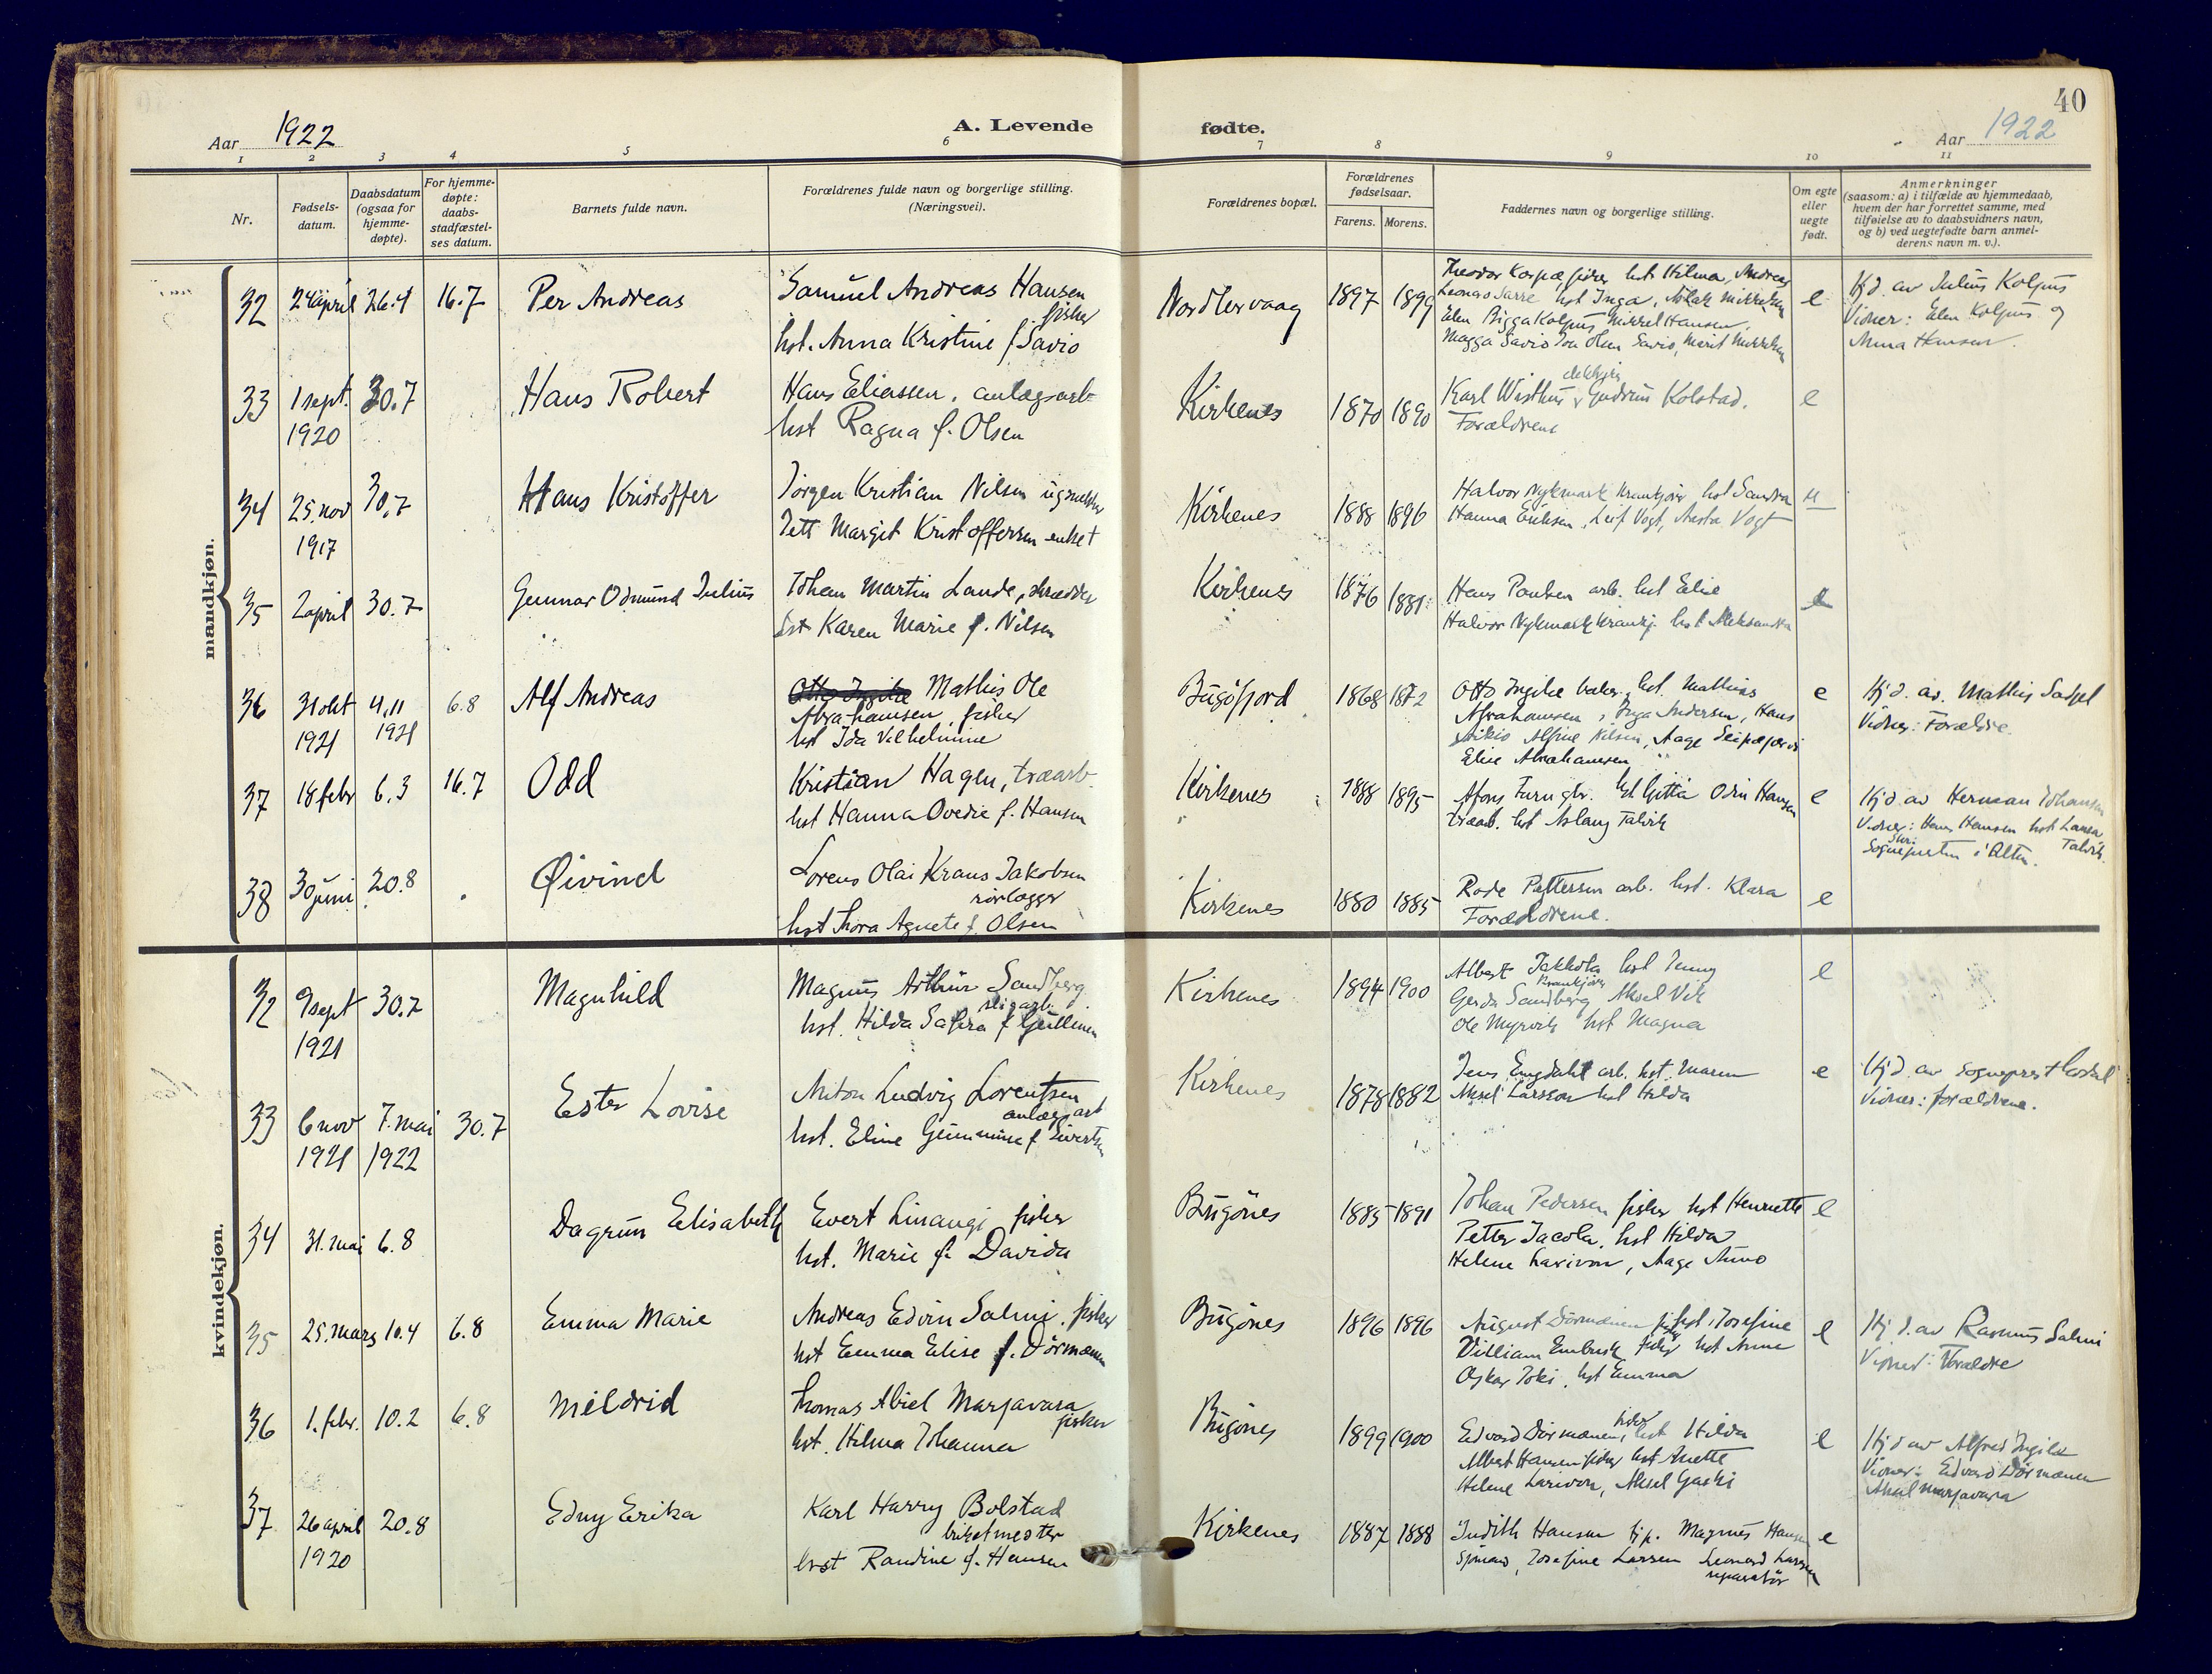 40
Aar 1922
A. Levende fødte.
Aar 1922
1 2 3 4 5 6 7 8 9 10 11
Nr.
Fødsels-
datum.
Daabsdatum
(ogsaa for
hjemme-
døpte).
For hjemme-
døpte:
daabs-
stadfæstel-
ses datum.
Barnets fulde navn.
Forældrenes fulde navn og borgerlige stilling.
(Næringsvei).
Forældrenes bopæl.
Forældrenes
fødselsaar.
Farens. Morens.
Faddernes navn og borgerlige stilling.
Om egte
eller
uegte
født.
Anmerkninger
(saasom: a) i tilfælde av hjemmedaab,
hvem der har forrettet samme, med
tilføielse av to daabsvidners navn,
og b) ved uegtefødte barn anmel-
derens navn m. v.).
mandkjøn.
32 24 april 26.4 16.7 Per Andreas
Samuel Andreas Hansen
fisker
hst. Anna Kristine f. Savio
Nordlervaag 1897 1899
Theodor Karpæ, fisker, hst Hilma, Andreas
Leonard Sarre hst Inga,
Elen Bigga Kolpus, Mikkel Hansen,
Magga Savio Olsen Savio, Marit Mikkelsen
e
Hjd. av Julius Kolpus
Vidner: Elen Kolpus og
Anna Hansen.
33 1 sept. 30.7 Hans Robert
1920
Hans Eliassen, anlægsarb
hst Ragna f. Olsen
Kirkenes 1870 1890
Karl Wisthus, Gudrun Kolstad.
Forældrene
e
34 25. nov 30.7 Hans Kristoffer
1917
Jørgen Kristian Nilsen
Margit Kristoffersen
Kirkenes 1888 1896
Halvor Nykmark krankjører hst Sandra
Hanna Eriksen, Leif Vogt, Aasta Vogt
u
35 2 april 30.7 Gunnar Odmund Julius
Johan Martin Lande, skrædder
hst Karen Marie f. Nilsen
Kirkenes 1876 1881
Hans Paulsen arb. hst Elise
Halvor Nykmark krankj. hst Aleksandra
e
36 31 okt 4.11 6.8 Alf Andreas
1921 1921
Mathis Ole
Abrahamsen, fisker
hst Ida Vilhelmine
Bugøfjord 1868 1872
Otto Ingilæ hst. Mathias
Abrahamsen, Inga Andersen, Hans
Alfine Nilsen, Aage Seipæjærvi
Elise Abrahamsen
e
Hjd. av. Mathis
Vidner: Forældre.
37 18 febr 6.3 16.7 Odd
Kristian Hagen, træarb.
hst Hanna Ovedie f. Hansen
Kirkenes 1888 1895
hst Gitta Odin Hansen
træarb. hst Aslaug Talvik
e
Hjd av Herman Johansen
Vidner: Hans Hansen hst Laura
Talvik.
Sogneprsten i Alten.
38 30 juni 20.8 Øivind
Lorens Olai Kraus Jakobsen
rørlægger
hst Thora Agnete f. Olsen
Kirkenes 1880 1885
Pettersen arb. hst. Klara
Forældrene.
e
kvindekjøn.
32 9 sept 30.7 Magnhild
1921
Magnus Arthur Sandberg
hst. Hilda Safira f Gullinen
Kirkenes 1894 1900
Albert Jakkola hst Jenny
krankjører
Gerda Sandberg Aksel Vik
Ole Myrvik hst Magna
e
33 6 nov 7. mai 30.7 Ester Lovise
1921 1922
Anton Ludvig Lorentsen
anlægsarb
hst. Eline Gunnmine f. Sivertsen
Kirkenes 1878 1882
Jens Engdahl arb. hst. Maren
Aksel Larsson hst Hilda
e
Hjd av sogneprest
Vidner: forældrene.
34 31. mai 6.8 Dagrun Elisabeth
Evert Linangi fisker
hst. Marie f. Davida
Bugønes 1885 1891
Johan Pedersen fisker hst Henriette
Petter Jacola, hst Hilda
Helene Larivon, Aage Anno
e
35 25. mars 10.4 6.8 Emma Marie
Andreas Edvin Salmi, fisker
hst Emma Elise f. Dørmænen
Bugønes 1896 1896
August Dørmænen fisker hst, Josefine
William Embusk fisker hst Anne
Oskar Joki, hst Emma
e
Hj d. av Rasmus Salmi
Vidner: Forældre
36 1. febr. 10.2 6.8 Mildrid
Thomas Abiel Marjavara
fisker
hst. Hilma Johanna
Bugønes 1899 1900
Edvard Dørmænen, fisker hst Hilda
Albert Hansen fisker hst Anette
Helene Larivon, Aksel Gaski
e
Hjd av Alfred Ingilæ
Vidner: Edvard Dørmænen
Aksel Marjavara
37 26 april 20.8 Edny Erika
1920
Karl Harry Bolstad
briketmester
hst Randine f. Hansen
Kirkenes 1887 1888
Judith Hansen tjp. Magnus Hansen
sjømand, Josefine Larsen Leonard Larsen
reparatør
e